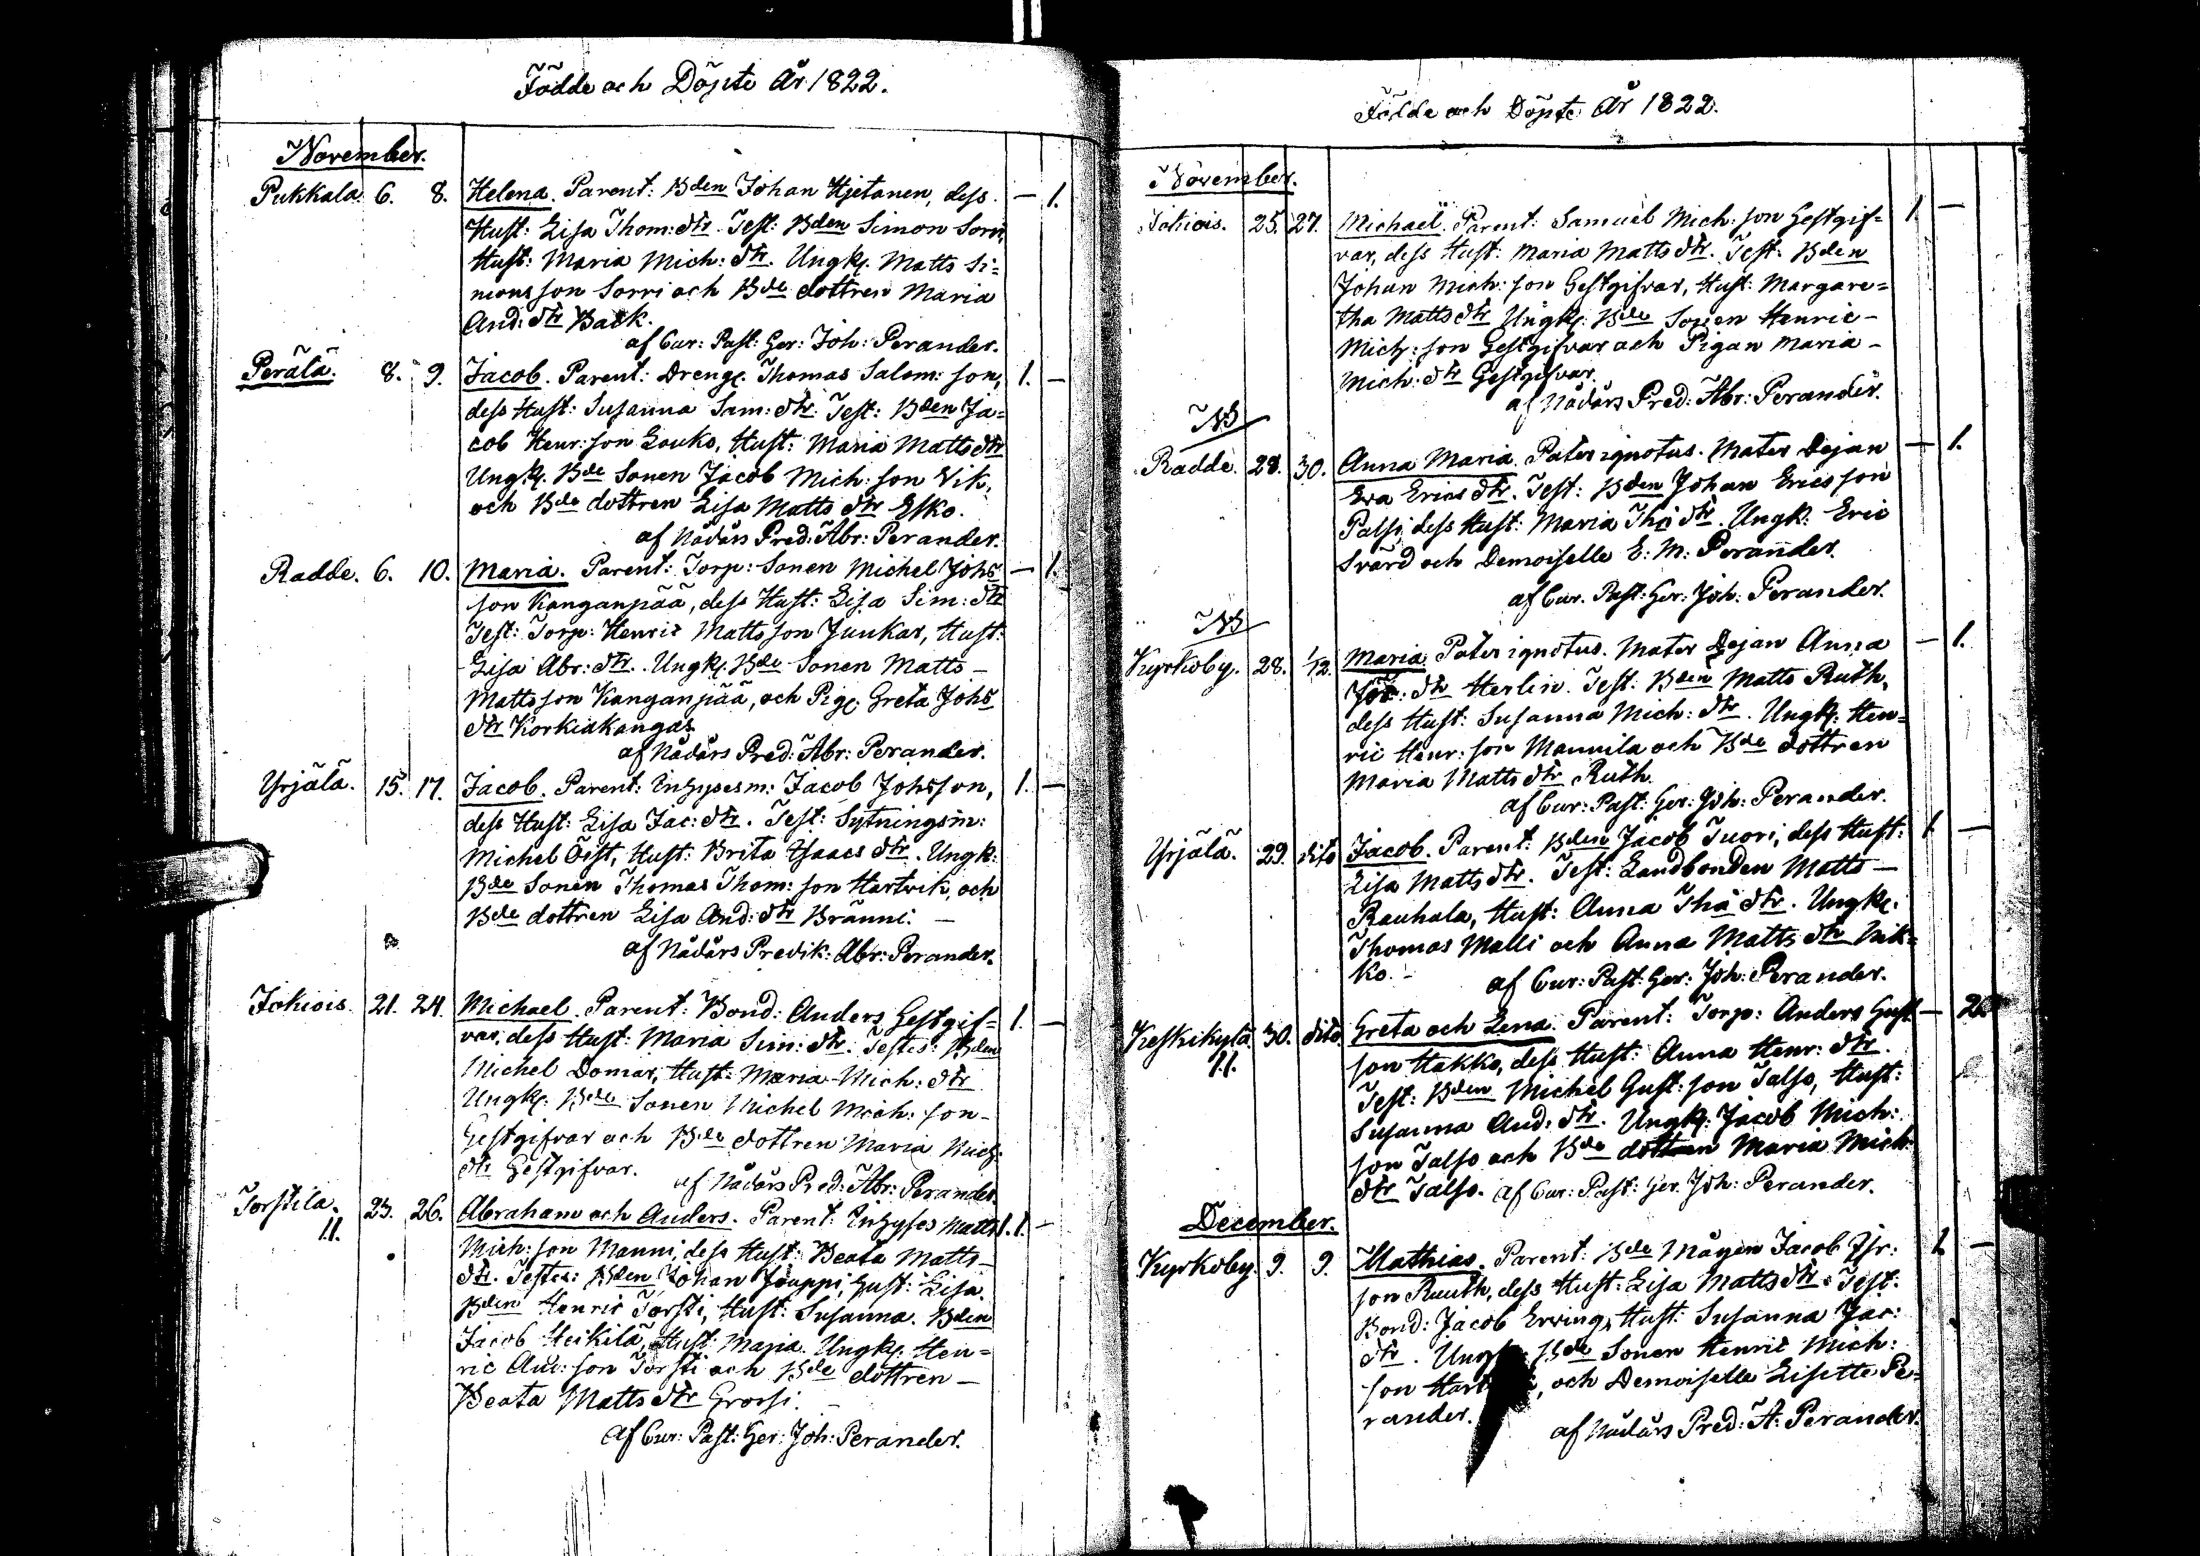 Födde och Döpte År 1822.
November.
Pukkala 6. 8. Helena. Parent: Bden Johan Hjetanen, dess — 1.
Hust: Lisa Thom: dtr. Test: Bden Simon Sorri,
Hust: Maria Mich: dtr. Ungk. Matts Si=
monsson Sorri och Bde dottren Maria
And: dtr Back.
af Cur: Past: Ger: Joh: Perander.
Perälä. 8. 9. Jacob. Parent: Dreng. Thomas Salom: son, 1. —
dess Hust: Susanna Sam: dtr. Test: Bden Ja=
cob Henr: son Louko, Hust: Maria Matts dtr
Ungk. Bde Sonen Jacob Mich: son Vik,
och Bde dottren Lisa Matts dtr Esko.
af Nådårs Pred: Abr: Perander.
Radde. 6. 10. Maria. Parent: Torp: Sonen Michel Johs — 1.
son Kanganpää, dess Hust: Lisa Sim: dtr
Test: Torp: Henric Mattsson Junkar, Hust:
Lisa Abr: dtr. Ungk. Bde Sonen Matts —
Mattsson Kanganpää, och Pig. Greta Johs
dtr Korkiakangas
af Nådårs Pred: Abr: Perander.
Yrjälä. 15. 17. Jacob. Parent: Inhysesm: Jacob Johsson, 1. —
dess Hust: Lisa Jac: dtr. Test: Sytningsm:
Michel Öist, Hust: Brita Isaacs dtr. Ungk:
Bde Sonen Thomas Thom: son Hartvik, och
Bde dottren Lisa And: dtr Bränni. —
af Nådårs Predik: Abr: Perander.
Jokiois. 21. 24. Michael. Parent: Bond: Anders Gestgif= 1. —
var, dess Hust: Maria Sim: dtr. Testes: Bden
Michel Domar, Hust: Maria Mich: dtr
Ungk. Bde Sonen Michel Mich: son —
Gestgifvar och Bde dottren Maria Mich:
dtr Gestgifvar. af Nådårs Pred: Abr: Perander.
Torstila. 23. 26. Abraham och Anders. Parent: Inhyses Matts 1.1. —
11. Mich: son Manni, dess Hust: Beata Matts —
dtr. Testes: Bden Johan Jouppi, Hust: Lisa.
Bden Henric Torsti, Hust: Susanna. Bden
Jacob Heikilä, Hust: Maria. Ungk. Hen=
ric And: son Torsti och Bde dottren —
Beata Matts dtr Grossi. —
af Cur: Past: Ger: Joh: Perander.
Födde och Döpte År 1822.
November.
Jokiois. 25. 27. Michael. Parent: Samuel Mich: son Gestgif= 1. —
var, dess Hust: Maria Matts dtr. Test: Bden
Johan Mich: son Gestgifvar, Hust: Margare=
tha Matts dtr Ungk. Bde Sonen Henric —
Mich: son Gestgifvar och Pigan Maria —
Mich: dtr Gestgifvar.
af Nådårs Pred: Abr: Perander.
NB
Radde. 28. 30. Anna Maria. Pater ignotus. Mater Dejan — 1.
Eva Erics dtr. Test: Bden Johan Ericsson
Palsi, dess Hust: Maria Tho dtr. Ungk: Eric
Svärd och Demoiselle E: M: Perander.
af Cur. Past: Ger: Joh: Perander.
NB
Kyrkoby. 28. 1/12. Maria Pater ignotus. Mater Dejan Anna — 1.
dtr Herlin. Test: Bden Matts Ruth,
dess Hust: Susanna Mich: dtr. Ungk. Hen=
ric Henr: son Mannila och Bde dottren
Maria Matts dtr Ruth.
af Cur: Past: Ger: Joh: Perander.
Yrjälä. 29. dito Jacob. Parent: Bden Jacob Tuori, dess Hust: 1 —
Lisa Matts dtr. Test: Landbonden Matts —
Rauhala, Hust: Anna Tho dtr. Ungk.
Thomas Malli och Anna Matts dtr Nik=
ko. — af Cur: Past: Ger: Joh: Perander.
Keskikylä. 30. dito. Greta och Lena. Parent: Torp: Anders Gust — 2
11. son Hakko, dess Hust: Anna Henr: dtr.
Test: Bden Michel Gust: son Talso, Hust:
Susanna And: dtr. Ungk. Jacob Mich:
son Talso och Bde dottren Maria Mich:
dtr Talso. af Cur: Past: Ger. Joh: Perander.
December.
Kyrkoby. 9. 9. Mathias. Parent: Bde Mågen Jacob 1 —
son Ruuth, dess Hust: Lisa Matts dtr. Test:
Bond: Jacob Erving, Hust: Susanna Jac:
dtr. Ungk: Bde Sonen Henric Mich:
son , och Demoiselle Lisette Pe=
rander.
af Nådårs Pred: A: Perander.